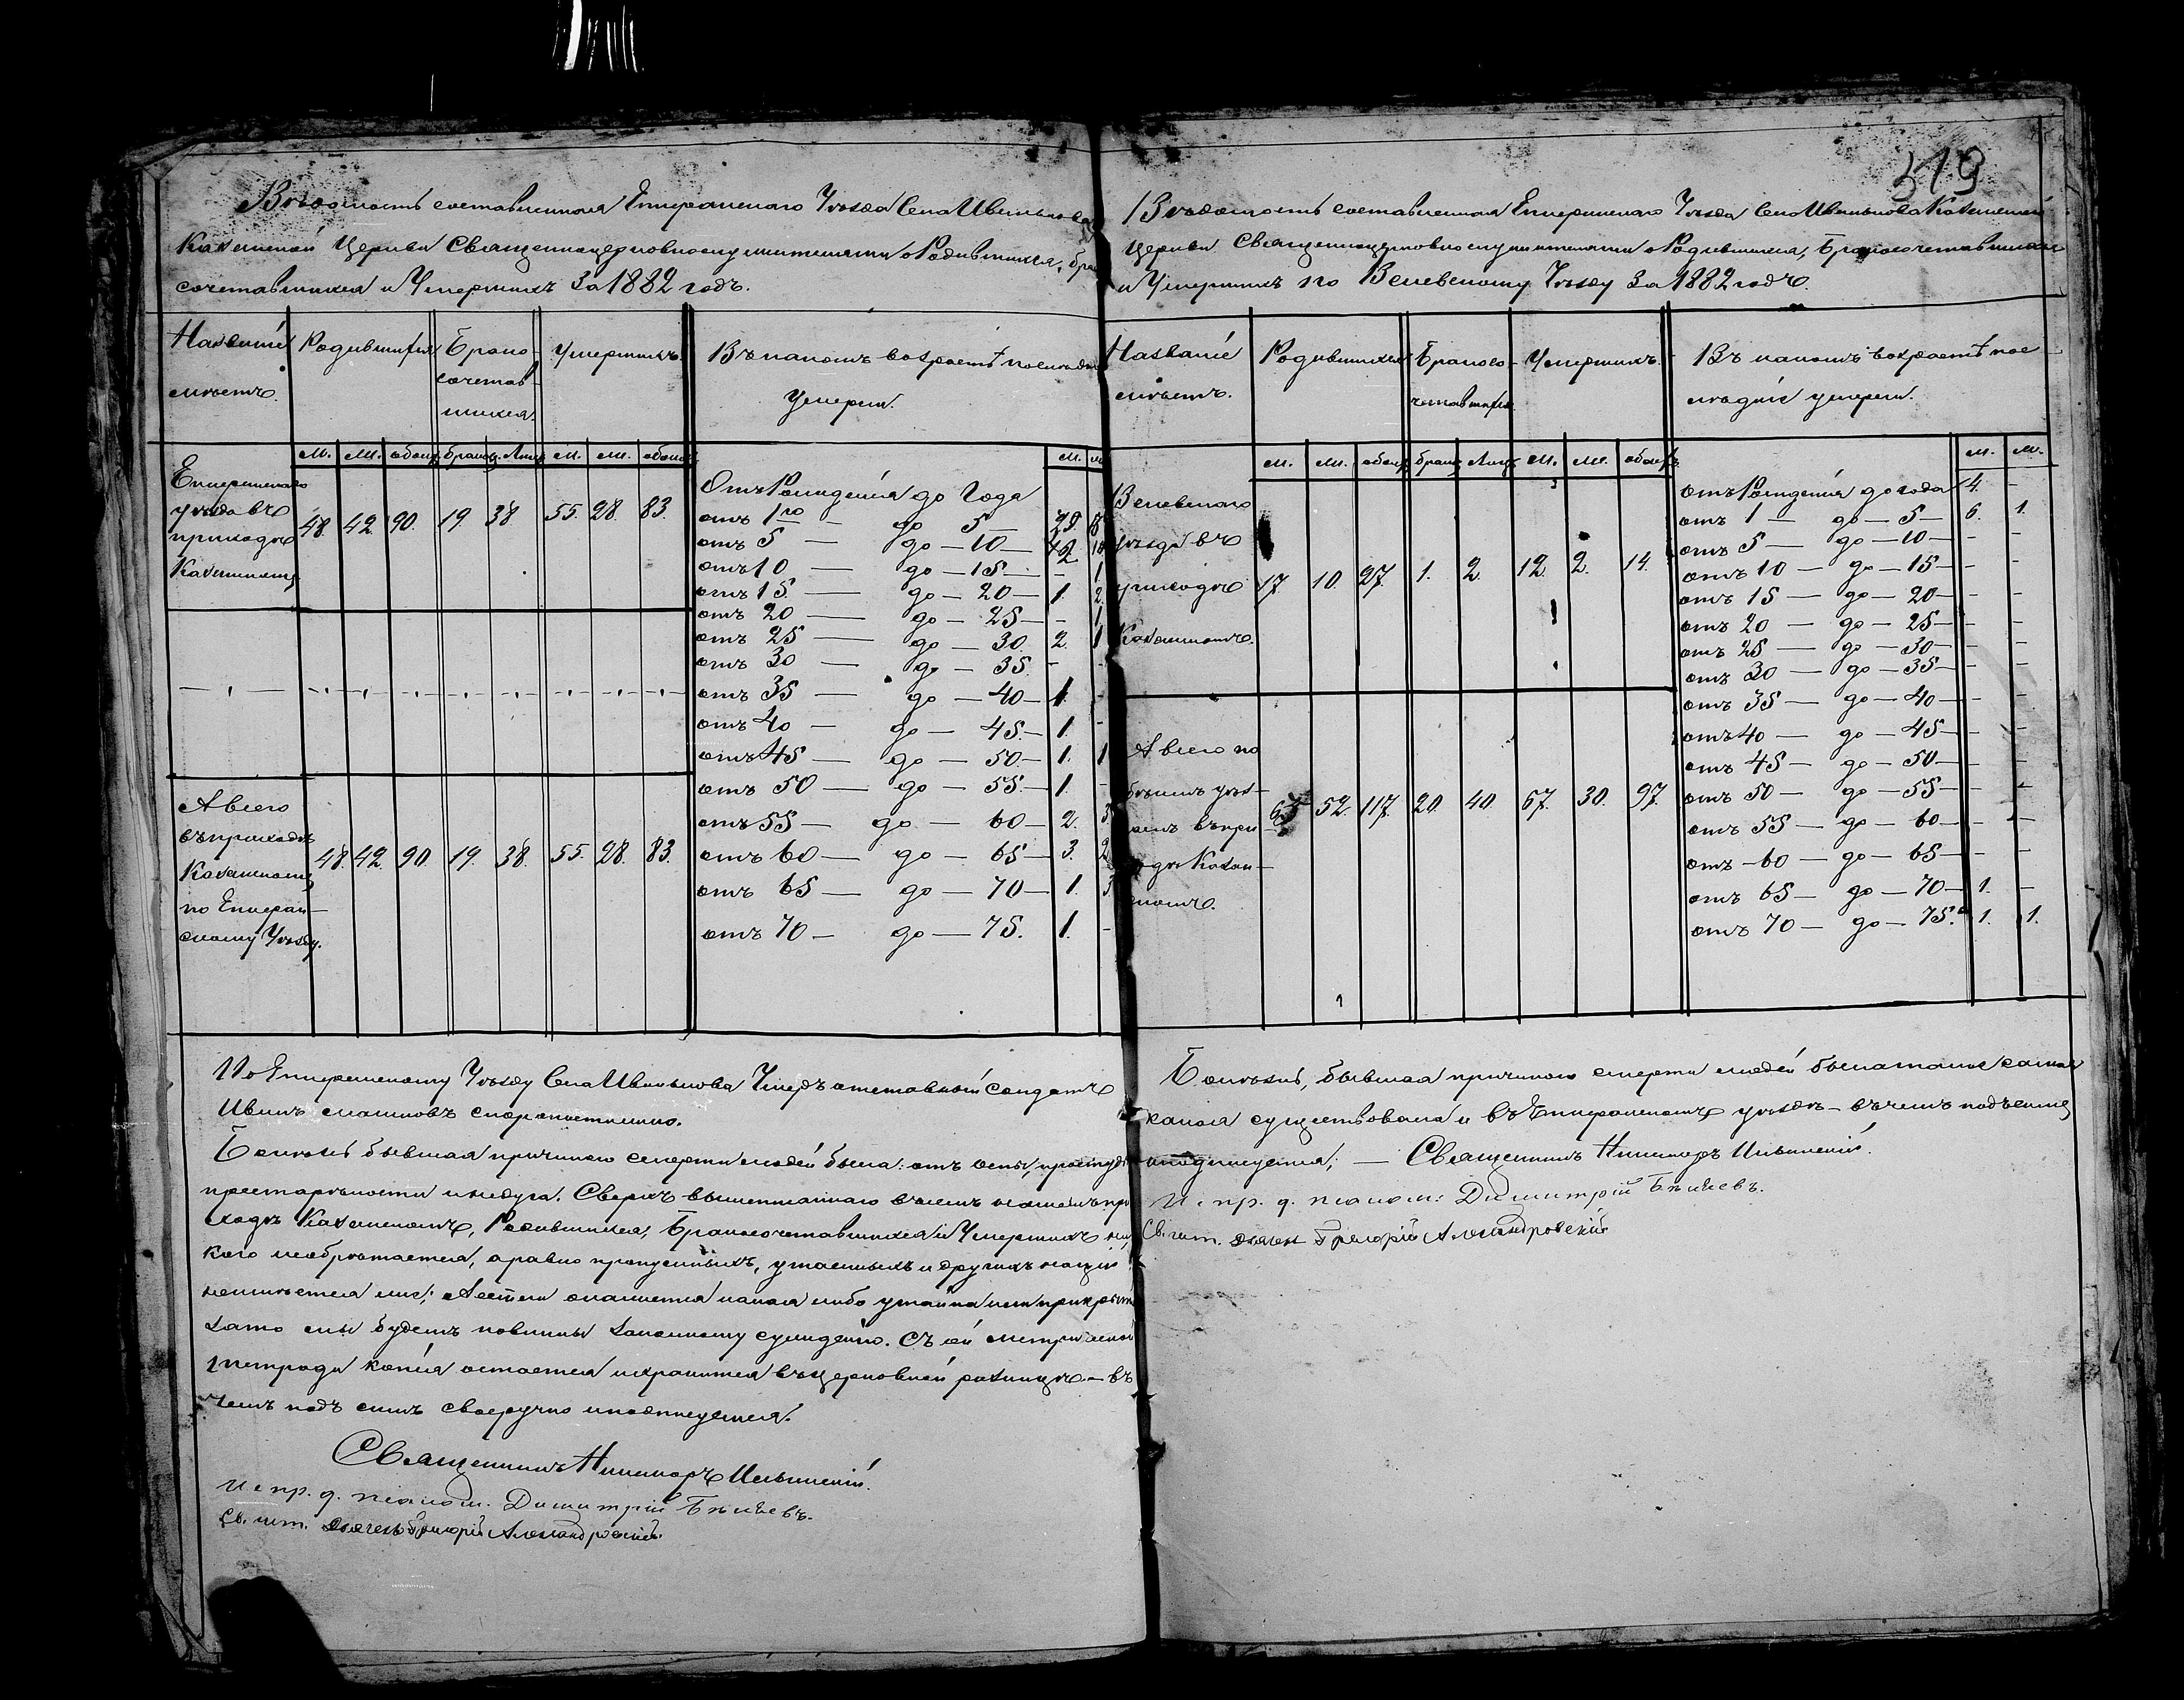 Вѣдомость составленная Епифанскаго Уѣзда Села Иванькова
Казанской Церкви Священноцерковнослужителями о Родившихся, бра
сочетавшихся и Умершихъ За 1882 годъ.
Названіе Родившихся Брако- Умершихъ Въ какомъ возрастѣ последн
мѣстъ. сочетав- Умерли.
шихся.
М. Ж. обоих. браков. Лицъ М. Ж. обоихъ М.
Епифанскаго
уѣзда въ 48. 42. 90. 19. 38 55. 28. 83.
приходѣ
Казанскомъ
Отъ Рожденія до Года
отъ 1го — до 5 — 29. 8
отъ 5 — до — 10 — 12. 10
отъ 10 — до — 15 — - 1
отъ 15. — до — 20 — 1. 2.
отъ 20 — до — 25 — - 1
отъ 25 — до — 30. 2. 1
отъ 30 — до — 35. -
отъ 35 — до — 40 — 1. -
отъ 40 — до — 45. — 1. -
отъ 45 — до — 50. — 1. 1
отъ 50 — до — 55. — 1. -
отъ 55 — до — 60 — 2.
отъ 60 — до — 65 — 3. 2
отъ 65 — до — 70 — 1. 3.
отъ 70 — до — 75. 1. -
А всего
въ приходѣ
Казанскомъ 48. 42. 90. 19. 38. 55. 28. 83.
по Епифан-
скому Уѣзду.
По Епифанскому Уѣзду Села Иванькова Умеръ отставной Солдатъ
Иванъ скоропостижно.
Болѣзнь бывшая причиною смерти людей была: отъ оспы, простуды
престарѣлости и недуга. Сверхъ вышеписаннаго въ семъ нашемъ при
ходѣ Казанскомъ, Родившихся, Бракосочетавшихся и Умершихъ ни
кого необрѣтается, а равно пропускныхъ, утаенныхъ и другихъ
; А естли окажется какая либо утайка или прикрытіе
зато мы будемъ повинны законному сужденію. Съ сей метрической
тетради копія остается и хранится въ церковной ризницѣ — въ
чемъ подъ симъ своеручно и подпишуемся.
Священникъ Никаноръ Ильинскій.
И. пр. д. псалом. Димитрій Бѣляевъ.
Св. шт. дьячекъ Григорій Александровскій.
319
Вѣдомость составленная Епифанскаго Уѣзда Села Иванькова Казанской
Церкви Священноцерковнослужителями о Родившихся, Бракосочетавшихся
и Умершихъ по Веневскому Уѣзду За 1882 годъ.
Названіе Родившихся Бракосо- Умершихъ. Въ какомъ возрастѣ пос
мѣстъ. четавшихся лѣдніе умерли.
М. Ж. обоих браков Лицъ М. Ж. обоихъ М. Ж.
Веневскаго
уѣзда въ
приходѣ 17. 10. 27. 1. 2. 12. 2. 14.
Казанскомъ.
отъ Рожденія до года 4. -
отъ 1 — до — 5 — 6. 1.
отъ 5 — до — 10 — - -
отъ 10 — до — 15 — - -
отъ 15 — до — 20 — - -
отъ 20 — до — 25 — - -
отъ 25 — до — 30 — - -
отъ 30 — до — 35 — - -
отъ 35 — до — 40 — - -
отъ 40 — до — 45 — - -
отъ 45 — до — 50 — - -
отъ 50 — до — 55 — - -
отъ 55 — до — 60 — - -
отъ 60 — до — 65 — - -
отъ 65 — до — 70 — 1. -
отъ 70 — до — 75. 1. 1.
А всего по
уѣз-
65 52. 117. 20. 40. 67. 30. 97.
Болѣзнь, бывшая причиною смерти людей была такая самая
какая существовала и въ Епифанскомъ уѣздѣ — въ чемъ подъ симъ
и подпишуемся; — Священникъ Никаноръ Ильинскій.
И. пр. д. псалом: Димитрій Бѣляевъ.
Св. шт. дьячекъ Григорій Александровскій